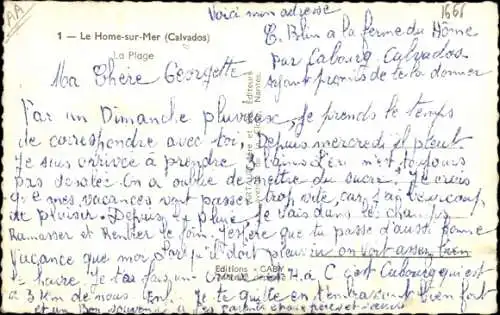 AA
1666
Voici mon adresse
1 – Le Home-sur-Mer (Calvados)
La Plage
T. Blin à la ferme du Hôme
par Cabourg Calvados
ayant promis de te la donner
Ma Chère Georgette
Par un Dimanche pluvieux, je prends le temps
de correspondre avec toi, Depuis mercredi il pleut
Je suis arrivée à prendre bains n'est toujours
pas dessalée On a oublié de mettre du sucre. Je crois
que mes vacances vont passer trop vite car j'ai beaucoup
de plaisir. Depuis la pluie je vais dans les champs
Ramasser et Rentrer le foin. J'espère que tu passe d'aussi bonne
vacance que moi pleuvoir on voit assez bien
le havre. Je 
Editions - CABY
H. à C c'est Cabourg qui est
à 3 km de nous. Je te quitte en t'embrassant bien fort
et un Bon souvenir à tes parents et aux frères et sœurs
Editeurs
Nantes